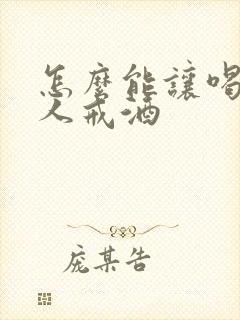 怎麼能讓喝
人戒酒
庞某告